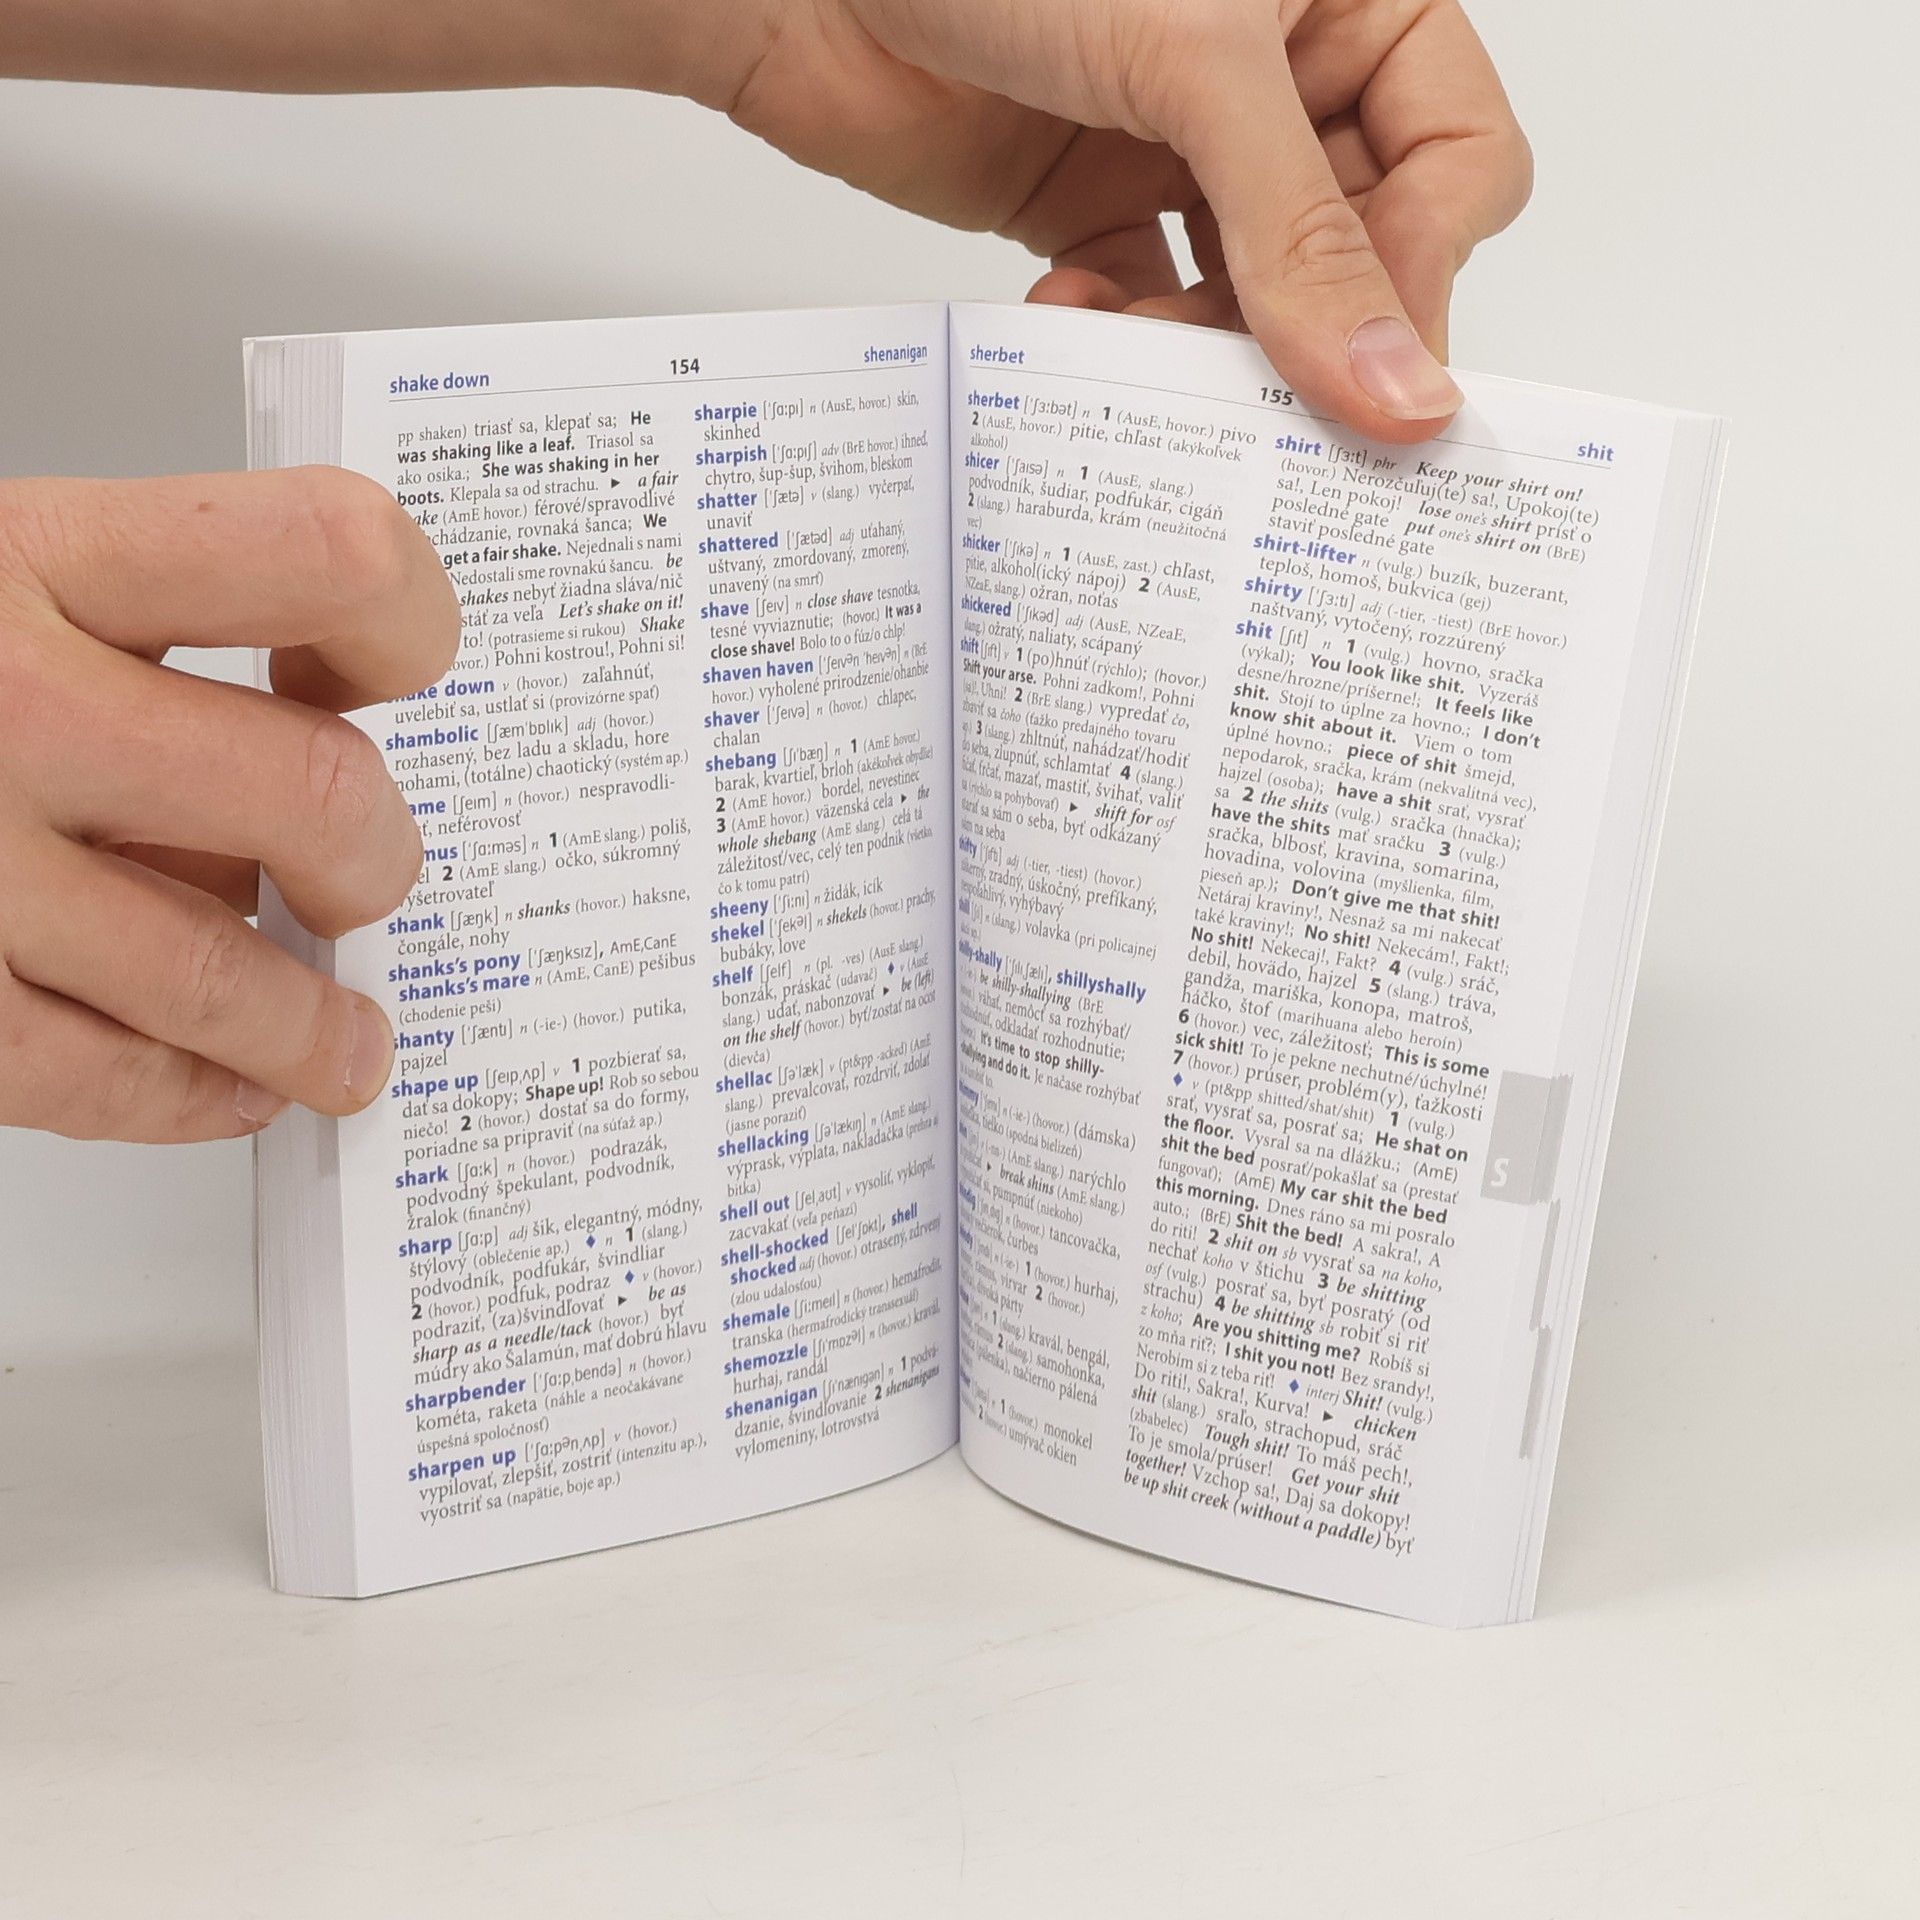 shake down
154
shenanigan
pp shaken) triasť sa, klepať sa; He
was shaking like a leaf. Triasol sa
ako osika.; She was shaking in her
boots. Klepala sa od strachu. ► a fair
(AmE hovor.) férové/spravodlivé
rovnaká šanca; We
get a fair shake. Nejednali s nami
Nedostali sme rovnakú šancu. be
shakes nebyť žiadna sláva/nič
stáť za veľa Let's shake on it!
to! (potrasieme si rukou) Shake
Pohni kostrou!, Pohni si!
down v (hovor.) zaľahnúť,
uvelebiť sa, ustlať si (provizórne spať)
shambolic [ʃæmˈbɒlɪk] adj (hovor.)
rozhasený, bez ladu a skladu, hore
nohami, (totálne) chaotický (systém ap.)
[ʃeɪm] n (hovor.) nespravodli-
neférovosť
[ˈʃɑ:məs] n 1 (AmE slang.) poliš,
2 (AmE slang.) očko, súkromný
vyšetrovateľ
shank [ʃæŋk] n shanks (hovor.) haksne,
čongále, nohy
shanks's pony [ˈʃæŋksɪz], AmE,CanE
shanks's mare n (AmE, CanE) pešibus
(chodenie peši)
shanty [ˈʃæntɪ] n (-ie-) (hovor.) putika,
pajzel
shape up [ʃeɪpˌʌp] v 1 pozbierať sa,
dať sa dokopy; Shape up! Rob so sebou
niečo! 2 (hovor.) dostať sa do formy,
poriadne sa pripraviť (na súťaž ap.)
shark [ʃɑ:k] n (hovor.) podrazák,
podvodný špekulant, podvodník,
žralok (finančný)
sharp [ʃɑ:p] adj šik, elegantný, módny,
štýlový (oblečenie ap.) ♦ n 1 (slang.)
podvodník, podfukár, švindliar
2 (hovor.) podfuk, podraz ♦ v (hovor.)
podraziť, (za)švindľovať ► be as
sharp as a needle/tack (hovor.) byť
múdry ako Šalamún, mať dobrú hlavu
sharpbender [ˈʃɑ:pˌbendə] n (hovor.)
kométa, raketa (náhle a neočakávane
úspešná spoločnosť)
sharpen up [ˈʃɑ:pənˌʌp] v (hovor.)
vypilovať, zlepšiť, zostriť (intenzitu ap.),
vyostriť sa (napätie, boje ap.)
sharpie [ˈʃɑ:pɪ] n (AusE, hovor.) skin,
skinhed
sharpish [ˈʃɑ:pɪʃ] adv (BrE hovor.) ihneď,
chytro, šup-šup, švihom, bleskom
shatter [ˈʃætə] v (slang.) vyčerpať,
unaviť
shattered [ˈʃætəd] adj uťahaný,
uštvaný, zmordovaný, zmorený,
unavený (na smrť)
shave [ʃeɪv] n close shave tesnotka,
tesné vyviaznutie; (hovor.) It was a
close shave! Bolo to o fúz/o chlp!
shaven haven [ˈʃeɪvən ˈheɪvən] n (BrE
hovor.) vyholené prirodzenie/ohanbie
shaver [ˈʃeɪvə] n (hovor.) chlapec,
chalan
shebang [ʃɪˈbæŋ] n 1 (AmE hovor.)
barak, kvartieľ, brloh (akékoľvek obydlie)
2 (AmE hovor.) bordel, nevestinec
3 (AmE hovor.) väzenská cela ► the
whole shebang (AmE slang.) celá tá
záležitosť/vec, celý ten podnik (všetko,
čo k tomu patrí)
sheeny [ˈʃi:nɪ] n židák, icík
shekel [ˈʃekəl] n shekels (hovor.) prachy,
bubáky, love
shelf [ʃelf] n (pl. -ves) (AusE slang.)
bonzák, práskač (udavač) ♦ v (AusE
slang.) udať, nabonzovať ► be (left)
on the shelf (hovor.) byť/zostať na ocot
(dievča)
shellac [ʃəˈlæk] v (pt&pp -acked) (AmE
slang.) prevalcovať, rozdrviť, zdolať
(jasne poraziť)
shellacking [ʃəˈlækɪŋ] n (AmE slang.)
výprask, výplata, nakladačka (prehra al.
bitka)
shell out [ʃelˌaʊt] v vysoliť, vyklopiť,
zacvakať (veľa peňazí)
shell-shocked [ʃelˈʃɒkt], shell
shocked adj (hovor.) otrasený, zdrvený
(zlou udalosťou)
shemale [ʃi:meɪl] n (hovor.) hemafrodit,
transka (hermafrodický transsexuál)
shemozzle [ʃɪˈmɒzəl] n (hovor.) kravál,
hurhaj, randál
shenanigan [ʃɪˈnænɪgən] n 1 podvá-
dzanie, švindľovanie 2 shenanigans
vylomeniny, lotrovstvá
sherbet
155
shit
sherbet [ˈʃɜ:bət] n 1 (AusE, hovor.) pivo
2 (AusE, hovor.) pitie, chľast (akýkoľvek
alkohol)
shicer [ˈʃaɪsə] n 1 (AusE, slang.)
podvodník, šudiar, podfukár, cigáň
2 (slang.) haraburda, krám (neužitočná
vec)
shicker [ˈʃɪkə] n 1 (AusE, zast.) chľast,
pitie, alkohol(ický nápoj) 2 (AusE,
NZeaE, slang.) ožran, noťas
shickered [ˈʃɪkəd] adj (AusE, NZeaE,
slang.) ožratý, naliaty, scápaný
shift [ʃɪft] v 1 (po)hnúť (rýchlo); (hovor.)
Shift your arse. Pohni zadkom!, Pohni
sa!, Uhni! 2 (BrE slang.) vypredať čo,
zbaviť sa čoho (ťažko predajného tovaru
ap.) 3 (slang.) zhltnúť, nahádzať/hodiť
do seba, zlupnúť, schlamtať 4 (slang.)
fičať, frčať, mazať, mastiť, švihať, valiť
sa (rýchlo sa pohybovať) ► shift for osf
starať sa sám o seba, byť odkázaný
sám na seba
shifty [ˈʃɪftɪ] adj (-tier, -tiest) (hovor.)
zradný, úskočný, prefíkaný,
nespoľahlivý, vyhýbavý
n (slang.) volavka (pri policajnej
shilly-shally [ˈʃɪlɪˌʃælɪ], shillyshally
be shilly-shallying (BrE
váhať, nemôcť sa rozhýbať/
rozhodnúť, odkladať rozhodnutie;
It's time to stop shilly-
shallying and do it. Je načase rozhýbať
n (-ie-) (hovor.) (dámska)
tielko (spodná bielizeň)
(AmE slang.) narýchlo
► break shins (AmE slang.)
pumpnúť (niekoho)
n (hovor.) tancovačka,
večierok, čurbes
n (-ie-) 1 (hovor.) hurhaj,
virvar 2 (hovor.)
divoká párty
1 (slang.) kravál, bengál,
2 (slang.) samohonka,
(pálenka), načierno pálená
1 (hovor.) monokel
2 (hovor.) umývač okien
shirt [ʃɜ:t] phr Keep your shirt on!
(hovor.) Nerozčuľuj(te) sa!, Upokoj(te)
sa!, Len pokoj! lose one's shirt prísť o
posledné gate put one's shirt on (BrE)
staviť posledné gate
shirt-lifter n (vulg.) buzík, buzerant,
teploš, homoš, bukvica (gej)
shirty [ˈʃɜ:tɪ] adj (-tier, -tiest) (BrE hovor.)
naštvaný, vytočený, rozzúrený
shit [ʃɪt] n 1 (vulg.) hovno, sračka
(výkal); You look like shit. Vyzeráš
desne/hrozne/príšerne!; It feels like
shit. Stojí to úplne za hovno.; I don't
know shit about it. Viem o tom
úplné hovno.; piece of shit šmejd,
nepodarok, sračka, krám (nekvalitná vec),
hajzel (osoba); have a shit srať, vysrať
sa 2 the shits (vulg.) sračka (hnačka);
have the shits mať sračku 3 (vulg.)
sračka, blbosť, kravina, somarina,
hovadina, volovina (myšlienka, film,
pieseň ap.); Don't give me that shit!
Netáraj kraviny!, Nesnaž sa mi nakecať
také kraviny!; No shit! Nekecám!, Fakt!;
No shit! Nekecaj!, Fakt? 4 (vulg.) sráč,
debil, hovádo, hajzel 5 (slang.) tráva,
gandža, mariška, konopa, matroš,
háčko, štof (marihuana alebo heroín)
6 (hovor.) vec, záležitosť; This is some
sick shit! To je pekne nechutné/úchylné!
7 (hovor.) prúser, problém(y), ťažkosti
♦ v (pt&pp shitted/shat/shit) 1 (vulg.)
srať, vysrať sa, posrať sa; He shat on
the floor. Vysral sa na dlážku.; (AmE)
shit the bed posrať/pokašlať sa (prestať
fungovať); (AmE) My car shit the bed
this morning. Dnes ráno sa mi posralo
auto.; (BrE) Shit the bed! A sakra!, A
do riti! 2 shit on sb vysrať sa na koho,
nechať koho v štichu 3 be shitting
osf (vulg.) posrať sa, byť posratý (od
strachu) 4 be shitting sb robiť si riť
z koho; Are you shitting me? Robíš si
zo mňa riť?; I shit you not! Bez srandy!,
Nerobím si z teba riť! ♦ interj Shit! (vulg.)
Do riti!, Sakra!, Kurva! ► chicken
shit (slang.) sraľo, strachopud, sráč
(zbabelec) Tough shit! To máš pech!,
To je smola/prúser! Get your shit
together! Vzchop sa!, Daj sa dokopy!
be up shit creek (without a paddle) byť
S